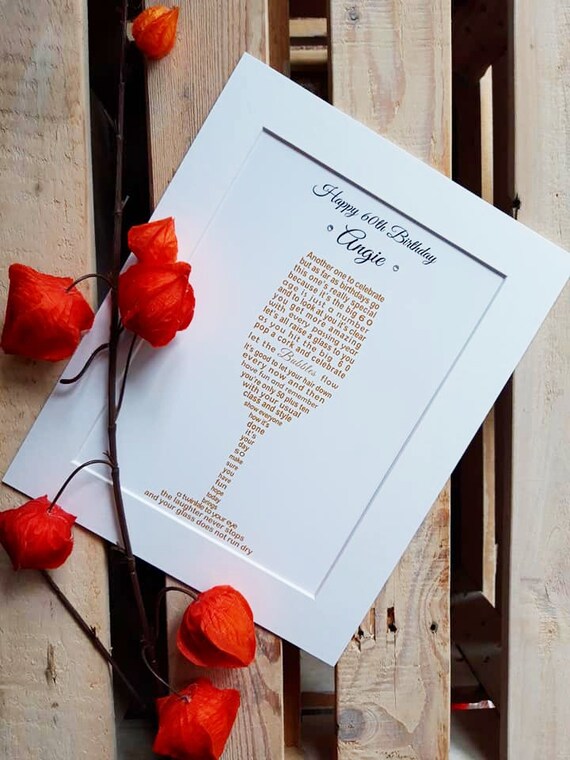 Happy 60th Birthday
Angie
Another one to celebrate
but as far as birthdays go
this one's really special
because it's the big 60
age is just a number
and to look at you it's clear
you get more amazing
with every passing year
let's all raise a glass to you
as you hit the big 6 0
pop a cork and celebrate
let the Bubbles flow
it's good to let your hair down
every now and then
have fun and remember
you're only 50 plus ten
with your usual
class and style
show everyone
how it's
done
it's
your
day
so
make
sure
you
have
fun
hope
today
brings
a twinkle to your eye
the laughter never stops
and your glass does not run dry